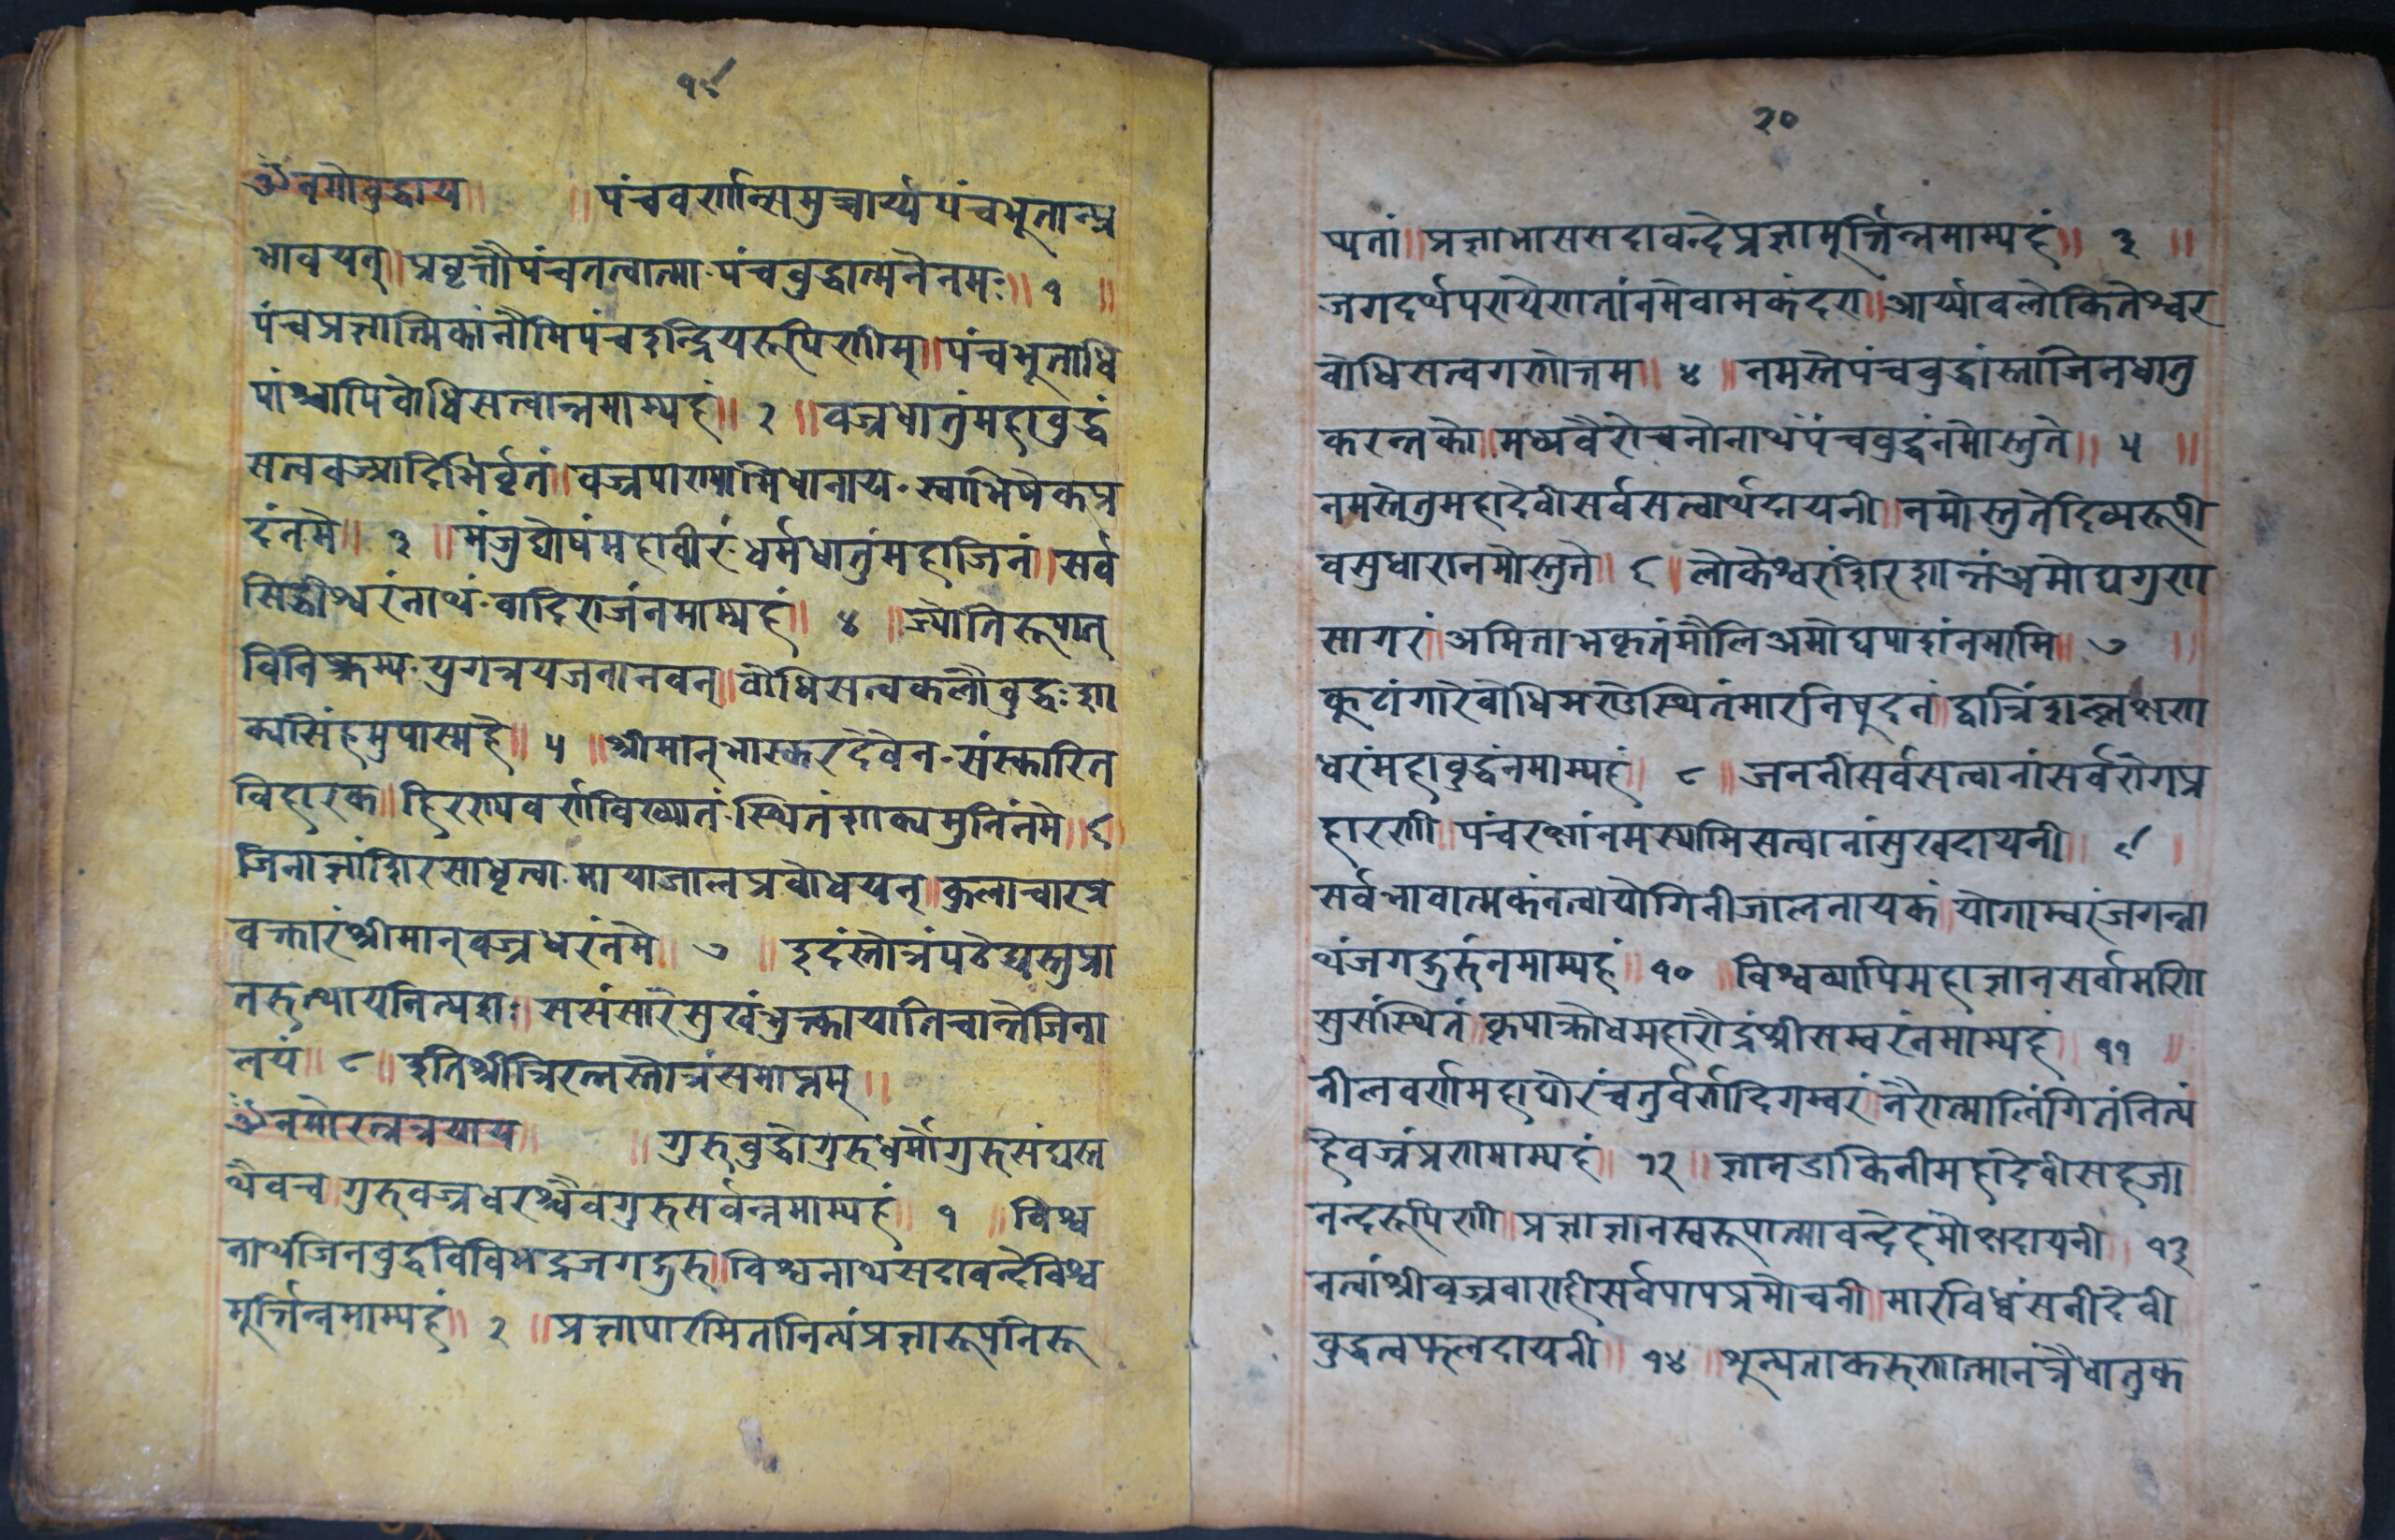 १९
ॐ नमो बुद्धाय ॥ ॥ पंचवर्णान्समुच्चार्य्य पंचभूतान्प्र
भावयत् ॥ प्रवृत्तौ पंचतत्वात्मा - पंचबुद्धात्मने नमः ॥ १ ॥
पंचप्रज्ञात्मिकां नौमि पंचइन्द्रियरूपिणीम् ॥ पंचभूताधि
पांश्चापि बोधिसत्वान्नमाम्यहं ॥ २ ॥ वज्रधातुं महाबुद्धं
सत्ववज्र्यादिभिर्वृतं ॥ वज्रपाण्याभिधानाय - स्वाभिषेकप्र
दं नमे ॥ ३ ॥ मंजुघोषं महावीरं - धर्मधातुं महाजिनं ॥ सर्व
सिद्धीश्वरं नाथं - वादिराजं नमाम्यहं ॥ ४ ॥ ज्योतिरूपात्
विनिष्क्रम्य - युगत्रयजनानवन् ॥ बोधिसत्व कलौ बुद्धः शा
क्यसिंहमुपास्महे ॥ ५ ॥ श्रीमान् भास्करदेवेन - संस्कारित
विहारकं ॥ हिरण्यवर्णविख्यातं - स्थितं शाक्यमुनिं नमे ॥ ६
जिनाज्ञां शिरसा धृत्वा - मायाजाल प्रबोधयन् ॥ कुलाचारप्र
वक्तारं श्रीमान् वज्रधरं नमे ॥ ७ ॥ इदं स्तोत्रं पठेद्यस्तु प्रा
तरुत्थाय नित्यशः ॥ स संसारे सुखं भुक्त्वा याति चान्ते जिना
लयं ॥ ८ ॥ इति श्रीत्रिरत्नस्तोत्रं समाप्तम् ॥
ॐ नमो रत्नत्रयाय ॥ ॥ गुरु बुद्धो गुरु धर्मो गुरु संघस्त
थैव च ॥ गुरु वज्रधरश्चैव गुरु सर्वन्नमाम्यहं ॥ १ ॥ विश्व
नाथ जिनबुद्ध विविभद्र जगद्गुरु ॥ विश्वनाथ सदा वन्दे विश्व
मूर्त्तिन्नमाम्यहं ॥ २ ॥ प्रज्ञापारमिता नित्यं प्रज्ञारूप निरू
२०
प्यतां ॥ प्रज्ञाभास सदा वन्दे प्रज्ञामूर्त्तिन्नमाम्यहं ॥ ३ ॥
जगदर्थपरायैणतां नमेवामकंदरा ॥ आर्य्यावलोकितेश्वर
बोधिसत्वगणोत्तम ॥ ४ ॥ नमस्ते पंचबुद्धांस्तां जिनधातु
करन्तको ॥ मध्य वैरोचनो नाथं पंचबुद्धं नमोस्तुते ॥ ५ ॥
नमस्तेतु महादेवी सर्वसत्वार्थदायनी ॥ नमोस्तुते दिव्यरूपी
वसुधारा नमोस्तुते ॥ ६ ॥ लोकेश्वरं शिरशान्तं अमोघगुण
सागरं ॥ अमिताभकृतं मौलि अमोघपाशं नमामि ॥ ७ ॥
कुटांगारे बोधिमण्डे स्थितं मारनिषुदनं ॥ द्वात्रिंशल्लक्षण
धरं महाबुद्धं नमाम्यहं ॥ ८ ॥ जननी सर्वसत्वानां सर्वरोगप्र
हारणी ॥ पंचरक्षां नमस्यामि सत्वानां सुखदायनी ॥ ९ ॥
सर्वभावात्मकं नत्वा योगिनीजालनायकं ॥ योगाम्बरं जगन्ना
थं जगद्गुरुं नमाम्यहं ॥ १० ॥ विश्वव्यापि महाज्ञान सर्वामणि
सुसंस्थितं ॥ कृपाक्रोधमहारौद्रं श्रीसम्वरं नमाम्यहं ॥ ११ ॥
नीलवर्ण महाघोरं चतुर्वर्ण दिगम्बरं ॥ नैरात्मालिंगितं नित्यं
हेवज्रं प्रणमाम्यहं ॥ १२ ॥ ज्ञानडाकिनी महादेवी सहजा
नन्दरूपिणी ॥ प्रज्ञाज्ञानस्वरूपात्मा वन्देहं मोक्षदायनी ॥ १३
नत्वां श्रीवज्रवाराही सर्वपापप्रमोचनी ॥ मारविध्वंसनी देवी
बुद्धत्वफलदायनी ॥ १४ ॥ शून्यता करुणात्मानं त्रैधातुक